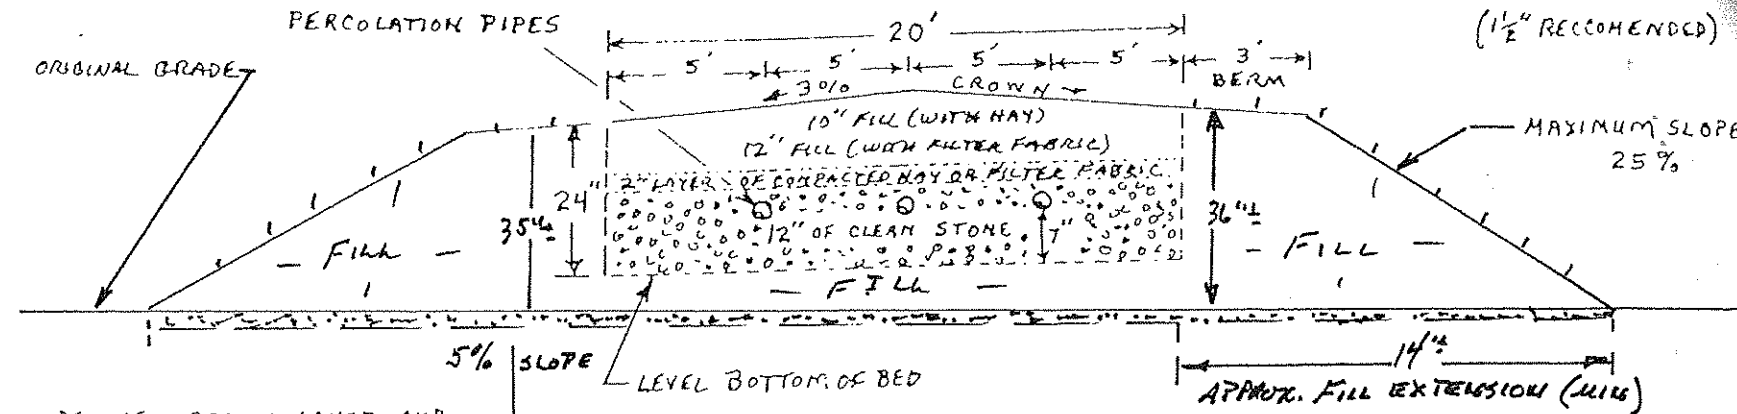 PERCOLATION PIPES
20'
(1½" RECCOMENDED)
ORIGINAL GRADE
5' 5' 5' 5' 3'
BERM
3% CROWN
10" FILL (WITH HAY)
12" FILL (WITH FILTER FABRIC)
MAXIMUM SLOPE
25%
2" LAYER OF COMPACTED HAY OR FILTER FABRIC
24"
35"±
36"±
12" OF CLEAN STONE 7"
- FILL -
- FILL -
- FILL -
5% SLOPE
LEVEL BOTTOM OF BED
14'±
APPROX. FILL EXTENSION (MIN)